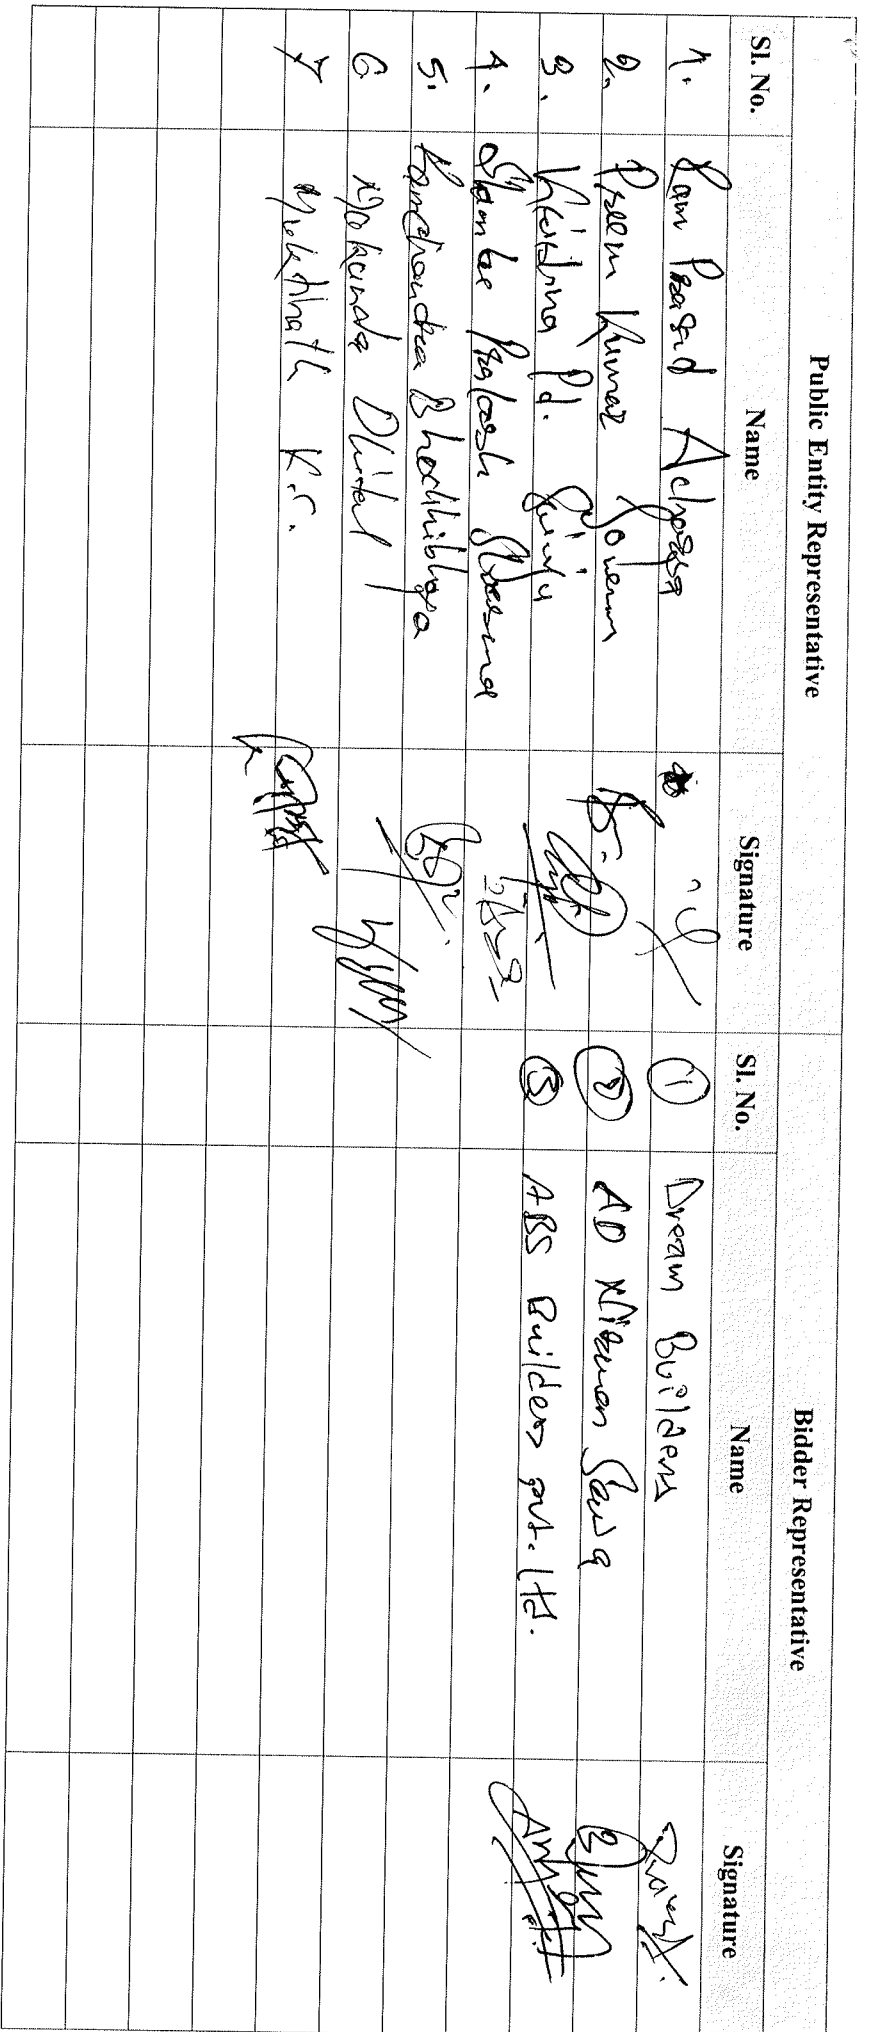 Public Entity Representative Bidder Representative
Sl. No. Name Signature Sl. No. Name Signature
1. Ram Prasad Acharya 1 Dream Builders
2. Prem Kumar 2 AD Nirman Sewa
3. Krishna Pd. Sainju 3 ABS Builders pvt. ltd.
4. Shambu Prakash
5. Ramchandra Bhochhibhoya
6 Mukunda Dhital
7 Muktinath K.C.